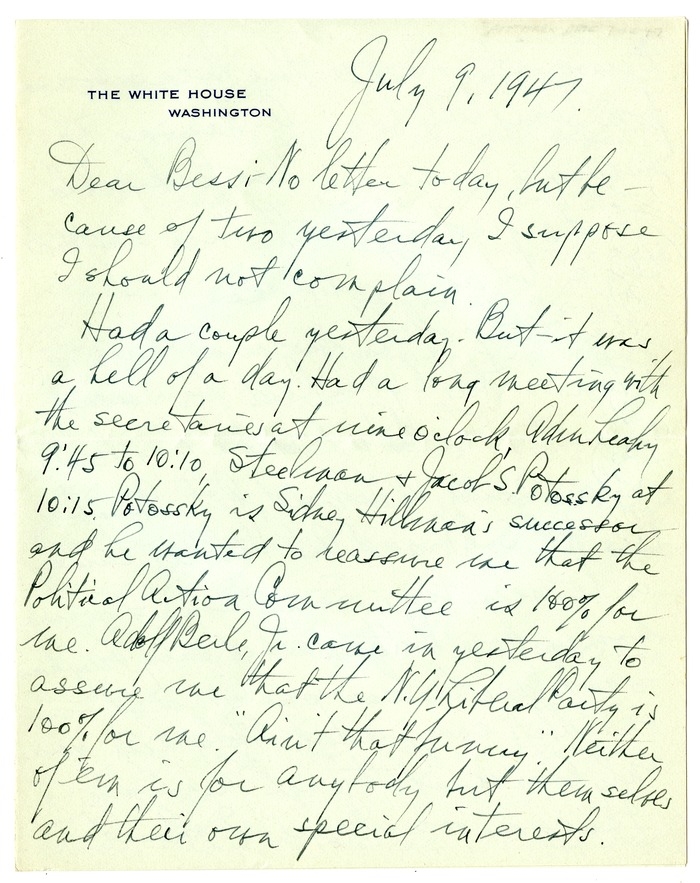 THE WHITE HOUSE
WASHINGTON
July 9, 1947.
Dear Bess:- No letter today, but be-
cause of two yesterday I suppose
I should not complain.
Had a couple yesterday. But it was
a hell of a day. Had a long meeting with
the secretaries at nine o'clock, Adm Leahy
9:45 to 10:10, Steelman + Jacob S. Potossky at
10:15. Potossky is Sidney Hillman's successor
and he wanted to reassure me that the
Political Action Committee is 100% for
me. Adolf Berle, Jr. came in yesterday to
assure me that the N.Y. Liberal Party is
100% for me. "Ain't that funny." Neither
of 'em is for anybody but themselves
and their own special interests.